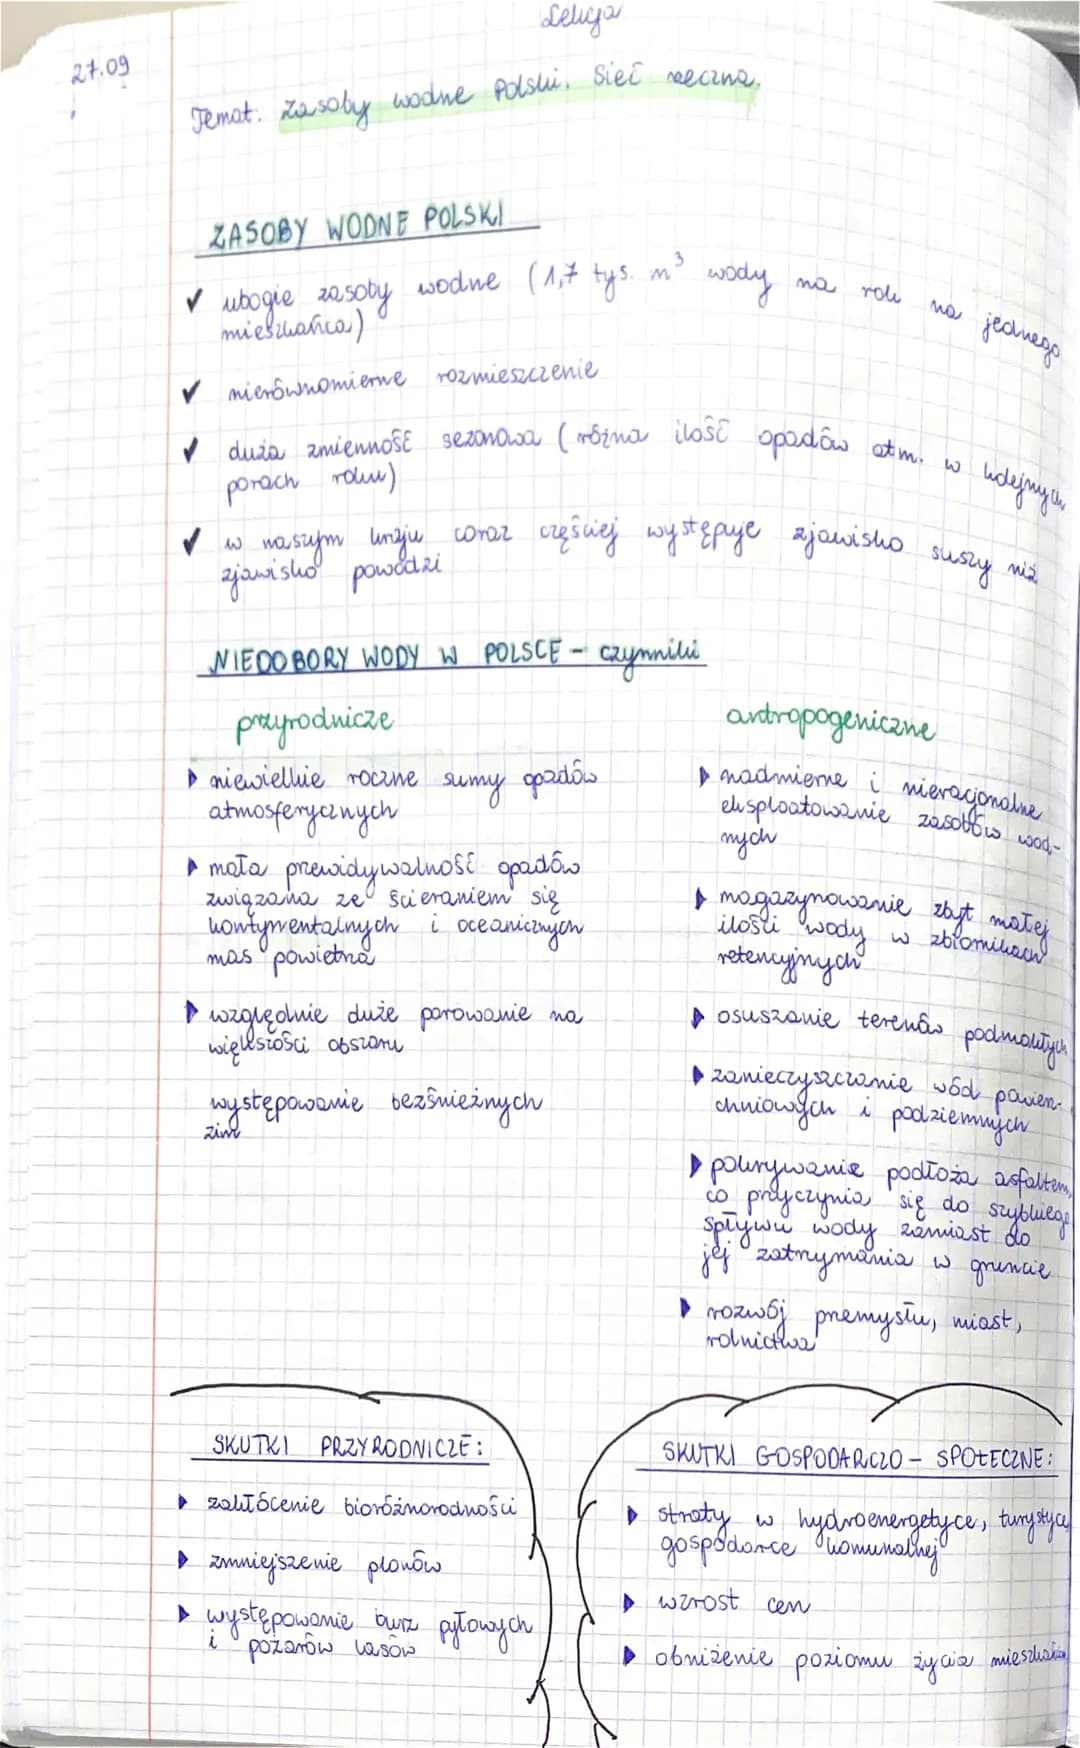 Lekcja
27.09
Temat: Zasoby wodne Polski. Sieć rzeczna.
ZASOBY WODNE POLSKI
✓ ubogie zasoby wodne (1,7 tys. m³ wody na rok na jednego
mieszkańca)
✓ nierównomierne rozmieszczenie
✓ duża zmienność sezonowa (różna ilość opadów atm. w kolejnych
porach roku)
✓ w naszym kraju coraz częściej występuje zjawisko suszy niż
zjawisko powodzi
NIEDOBORY WODY W POLSCE - czynniki
przyrodnicze
niewielkie roczne sumy opadów
atmosferycznych
mała przewidywalność opadów
związana ze ścieraniem się
kontynentalnych i oceanicznych
mas powietrza
względnie duże parowanie na
większości obszaru
występowanie bezśnieżnych
zim
antropogeniczne
nadmierne i nieracjonalne
eksploatowanie zasobów wod-
nych
magazynowanie zbyt małej
ilości wody w zbiornikach
retencyjnych
osuszanie terenów podmokłych
zanieczyszczanie wód powierz-
chniowych i podziemnych
pokrywanie podłoża asfaltem,
co przyczynia się do szybkiego
spływu wody zamiast do
jej zatrzymania w gruncie
rozwój przemysłu, miast,
rolnictwa
SKUTKI PRZYRODNICZE:
zakłócenie bioróżnorodności
zmniejszenie plonów
występowanie burz pyłowych
i pożarów lasów
SKUTKI GOSPODARCZO - SPOŁECZNE:
straty w hydroenergetyce, turystyce,
gospodarce komunalnej
wzrost cen
obniżenie poziomu życia mieszkańców